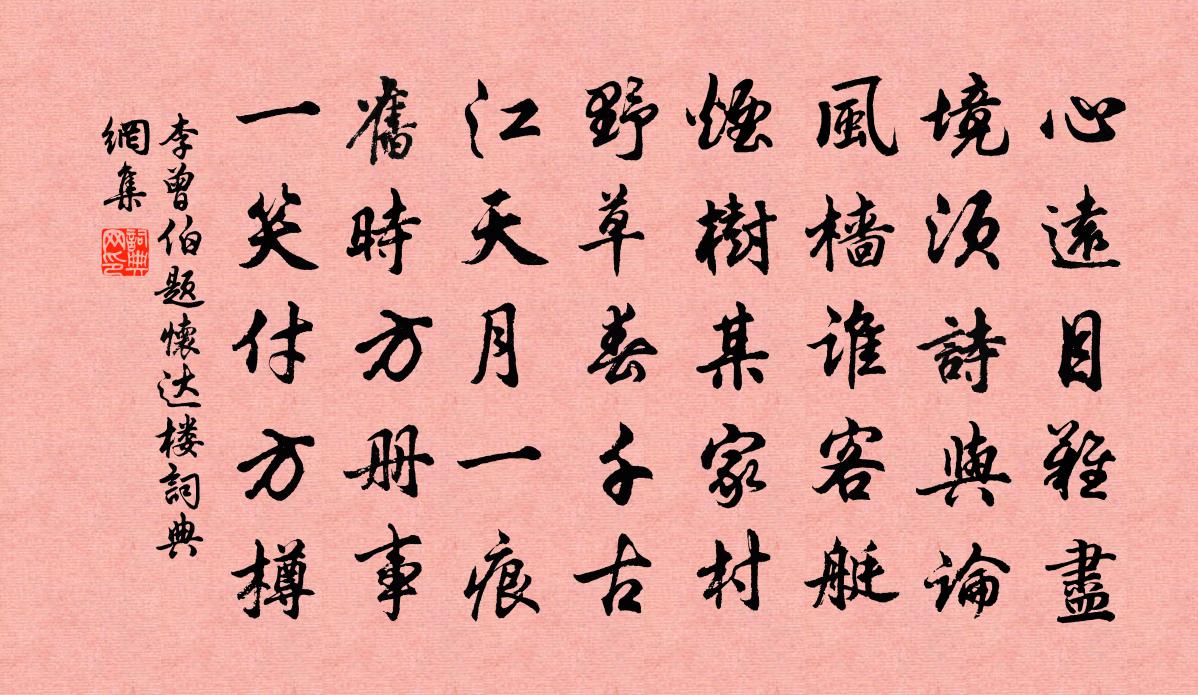 心遠目難盡
境須詩與論
風檣誰客艇
煙樹某家村
野草春千古
江天月一痕
舊時方冊事
一笑付方樽
李曾伯題懷达楼詞典
網集
詞典網印